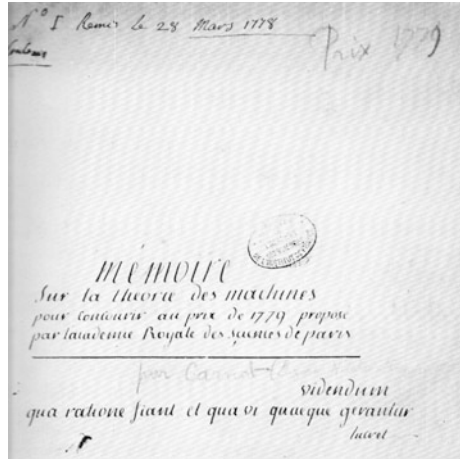 N° I Remis le 28 Mars 1778
Prix 1779
mémoire
Sur la théorie des machines
pour concourir au prix de 1779 proposé
par lacademie Royale des sciences de paris
par Carnot
videndum
qua ratione fiant et qua vi quaeque gerantur
lucret